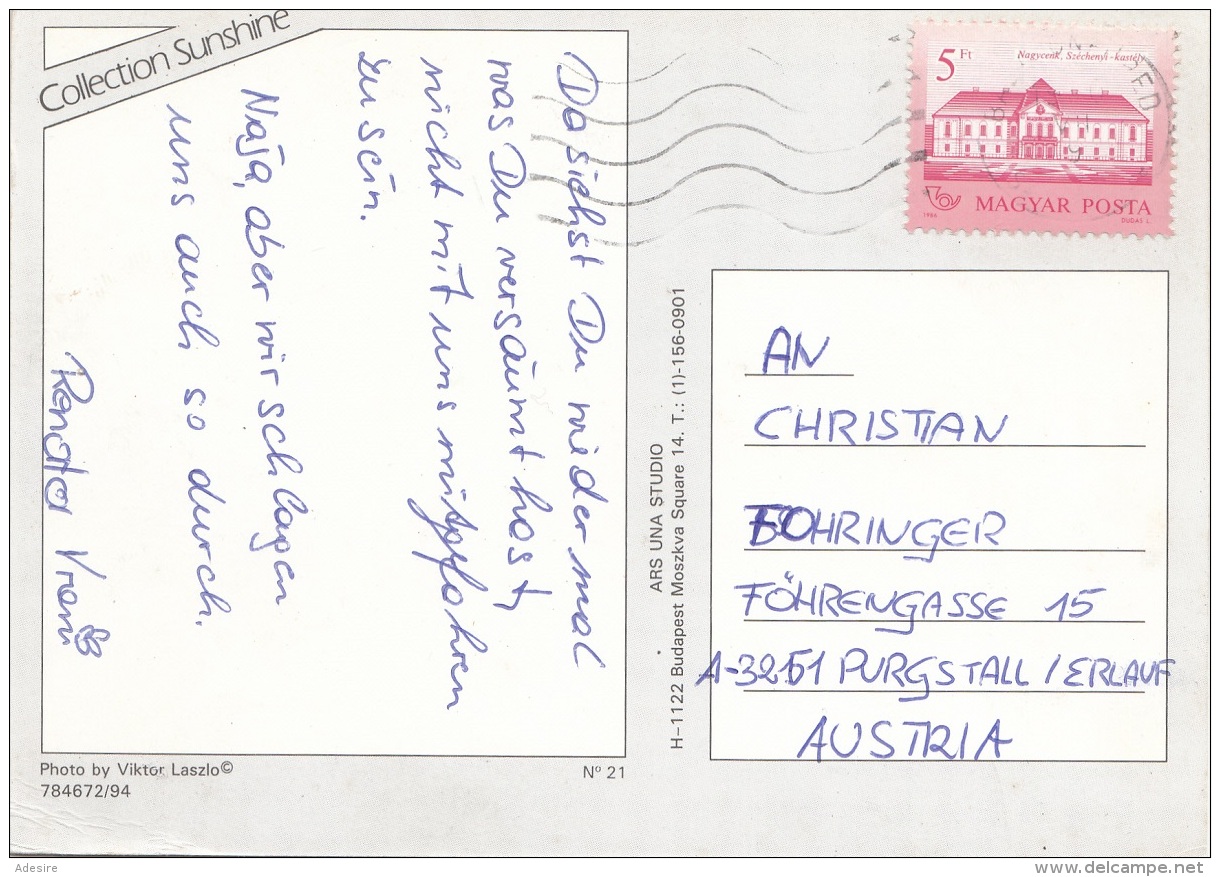 Collection Sunshine
Da siehst Du wieder mal
was Du versäumt hast,
nicht mit uns mitzufahren
zu sein.
Naja, aber wir schlagen
uns auch so durch.
Renata Vroni
5 Ft
Nagycenk, Széchenyi-kastély
1986
MAGYAR POSTA
DUDÁS L.
ARS UNA STUDIO
H-1122 Budapest Moszkva Square 14. T.: (1)-156-0901
AN
CHRISTIAN
FOHRINGER
FÖHRENGASSE 15
A-3251 PURGSTALL / ERLAUF
AUSTRIA
Photo by Viktor Laszlo©
Nº 21
784672/94
Adesire
www.delcampe.net